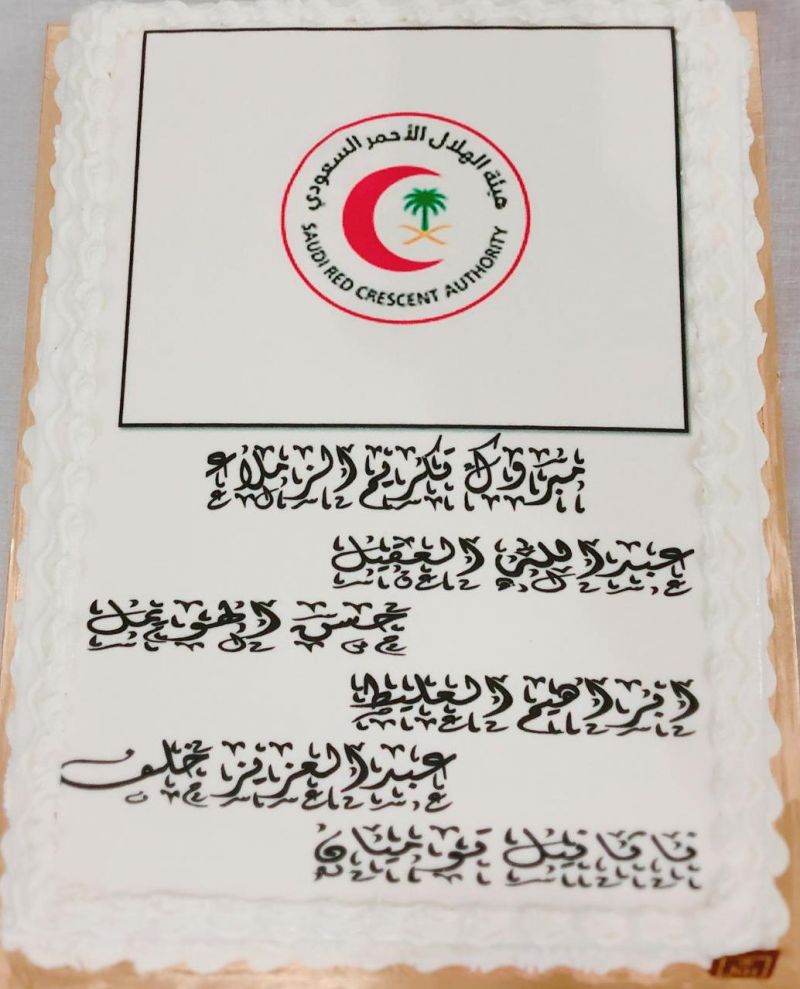 هيئة الهلال الأحمر السعودي
SAUDI RED CRESCENT AUTHORITY
مبروك تكريم الزملاء
عبدالله العقيل
خميس الهويمل
ابراهيم الغليط
عبدالعزيز خلف